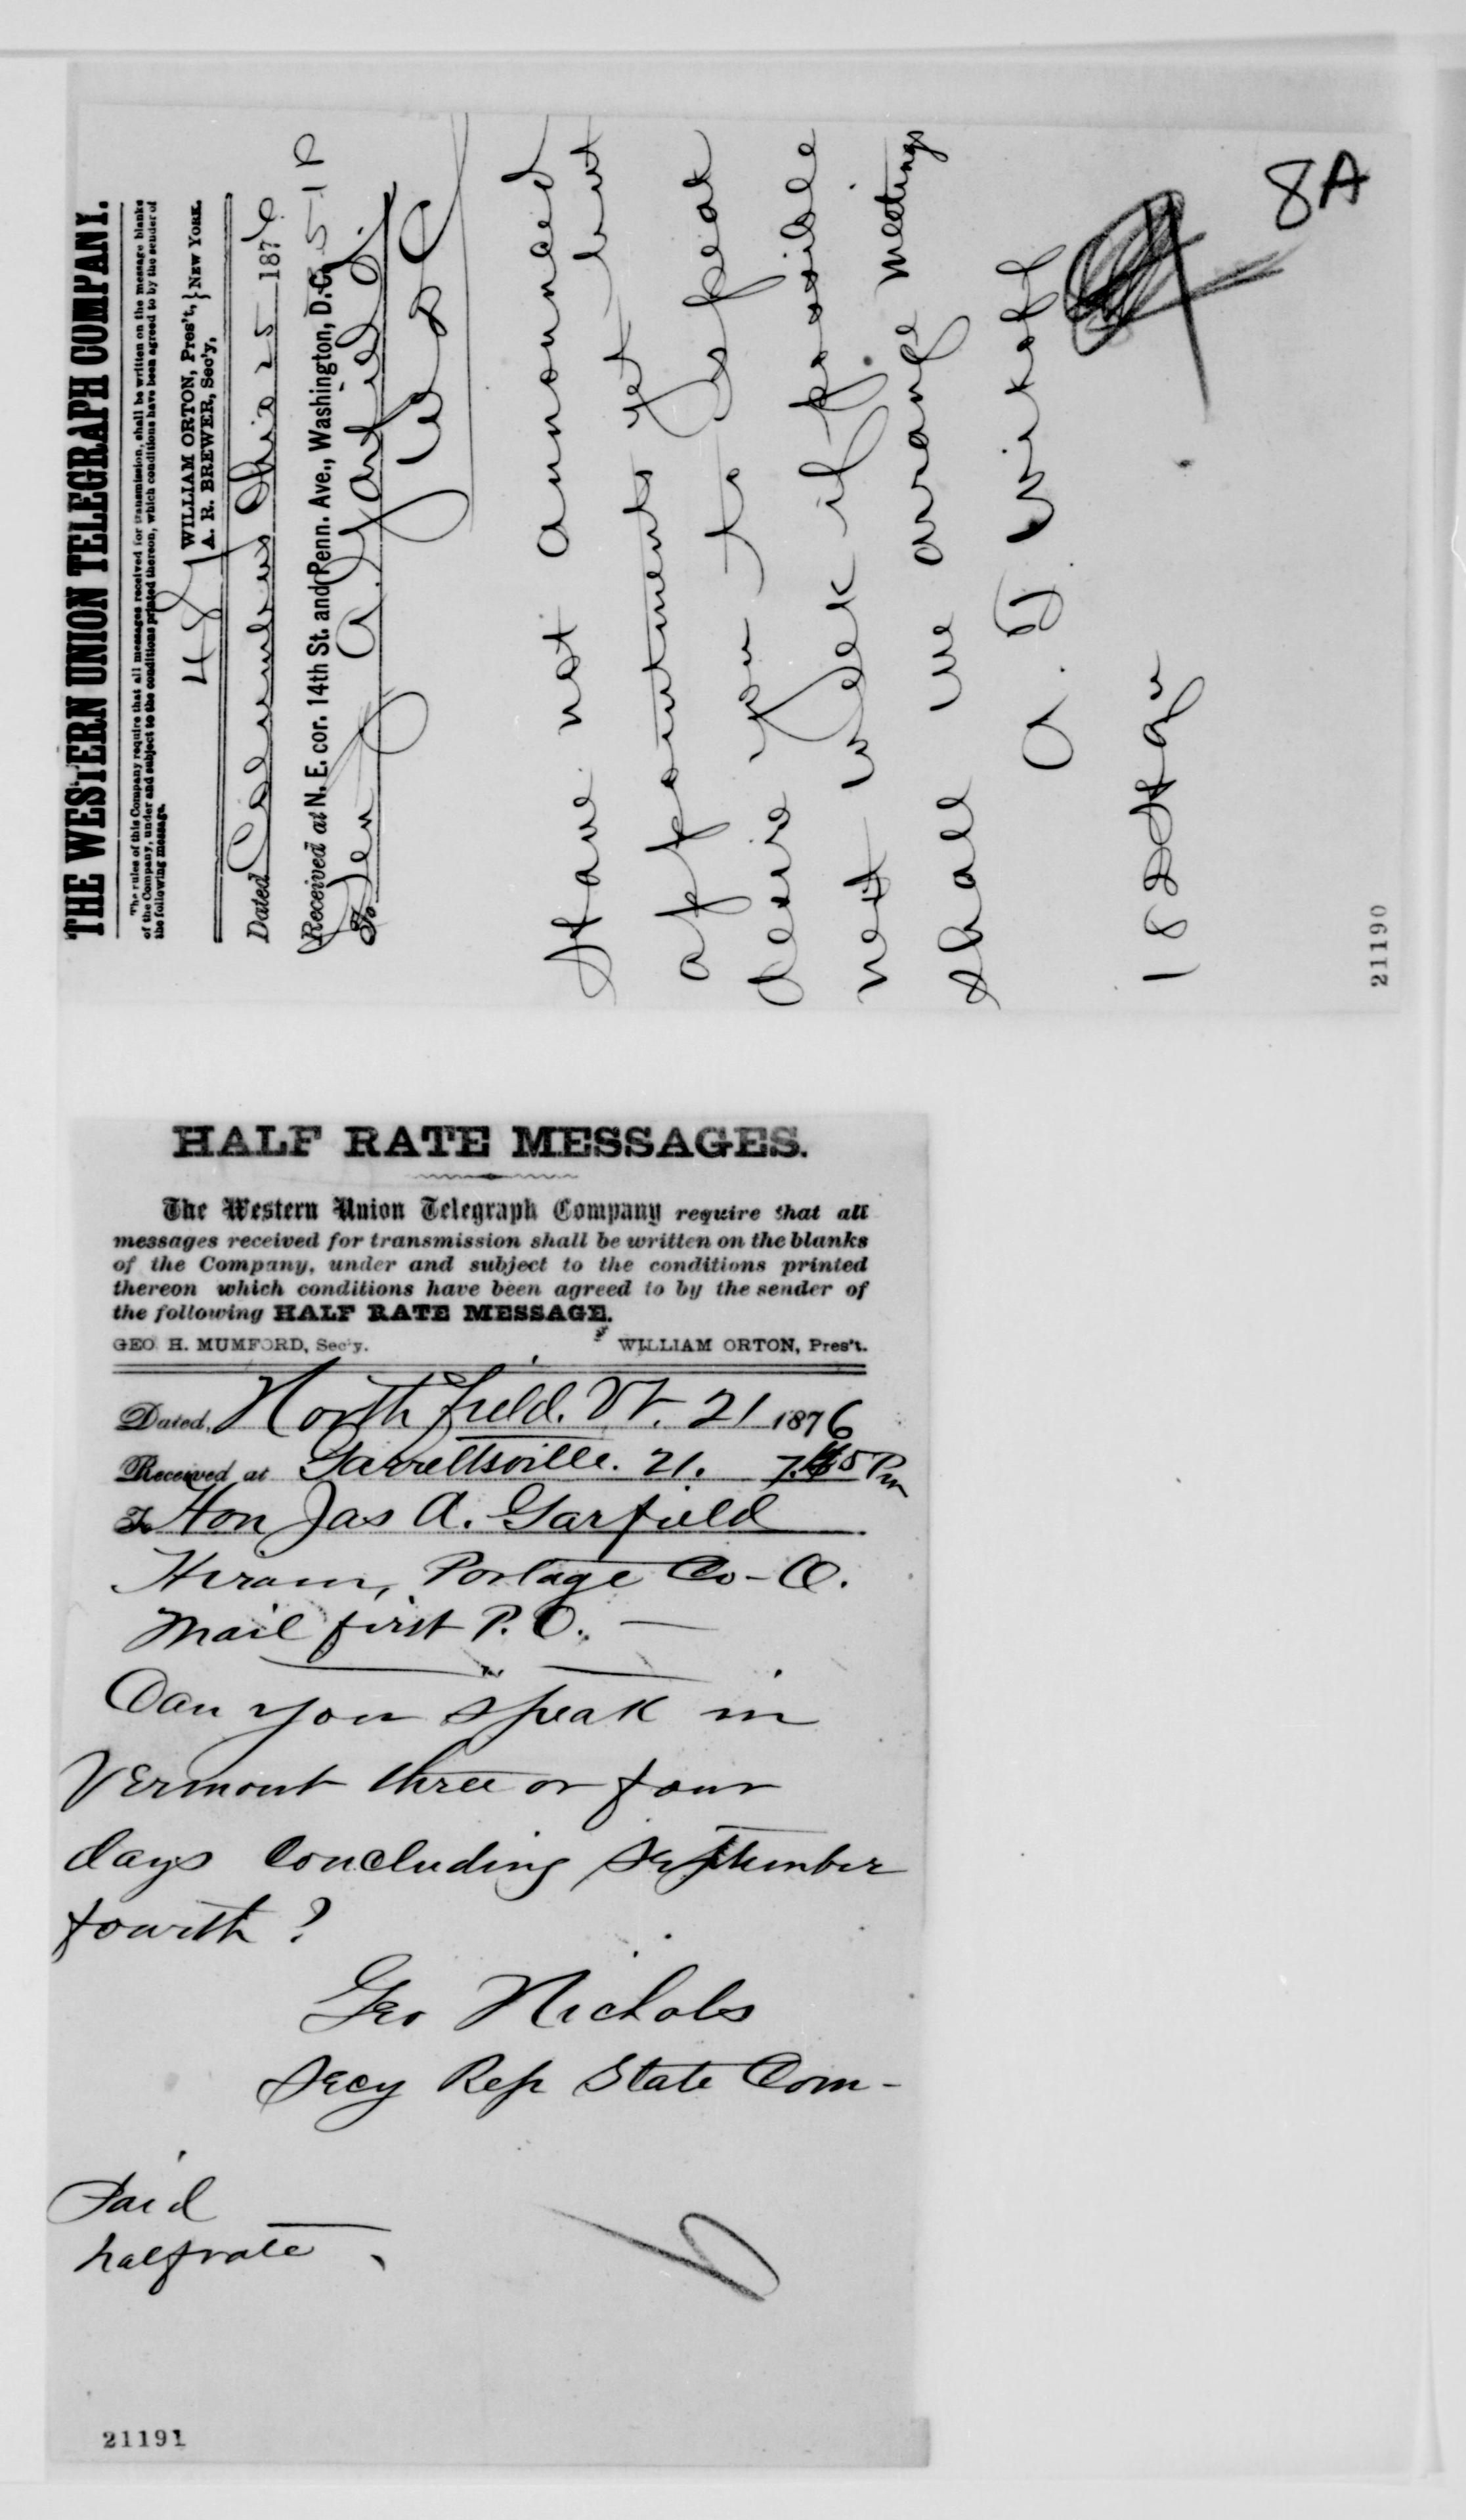 THE WESTERN UNION TELEGRAPH COMPANY.
The rules of this Company require that all messages received for transmission, shall be written on the message blanks
of the Company, under and subject to the conditions printed thereon, which conditions have been agreed to by the sender of
the following message.
48 WILLIAM ORTON, Pres't, } NEW YORK.
A. R. BREWER, Sec'y,
Dated Columbus Ohio 25 1876
Received at N. E. cor. 14th St. and Penn. Ave., Washington, D.C. 5-1P
To Gen J A. Garfield
Have not announced
appointments yet but
desire you to speak
next week if possible
shall we arrange meetings
A. T. Wikoff
8A
21190
HALF RATE MESSAGES.
The Western Union Telegraph Company require that all
messages received for transmission shall be written on the blanks
of the Company, under and subject to the conditions printed
thereon which conditions have been agreed to by the sender of
the following HALF RATE MESSAGE.
GEO. H. MUMFORD, Sec'y. WILLIAM ORTON, Pres't.
Dated, Northfield. Vt. 21 1876
Received at Garrettsville. 21. Pm
To Hon Jas A. Garfield
Hiram, Portage Co-O.
Mail first P.O. —
Can you speak in
Vermont three or four
days concluding September
fourth?
Geo Nichols
Secy Rep State Com-
Paid
halfrate
21191